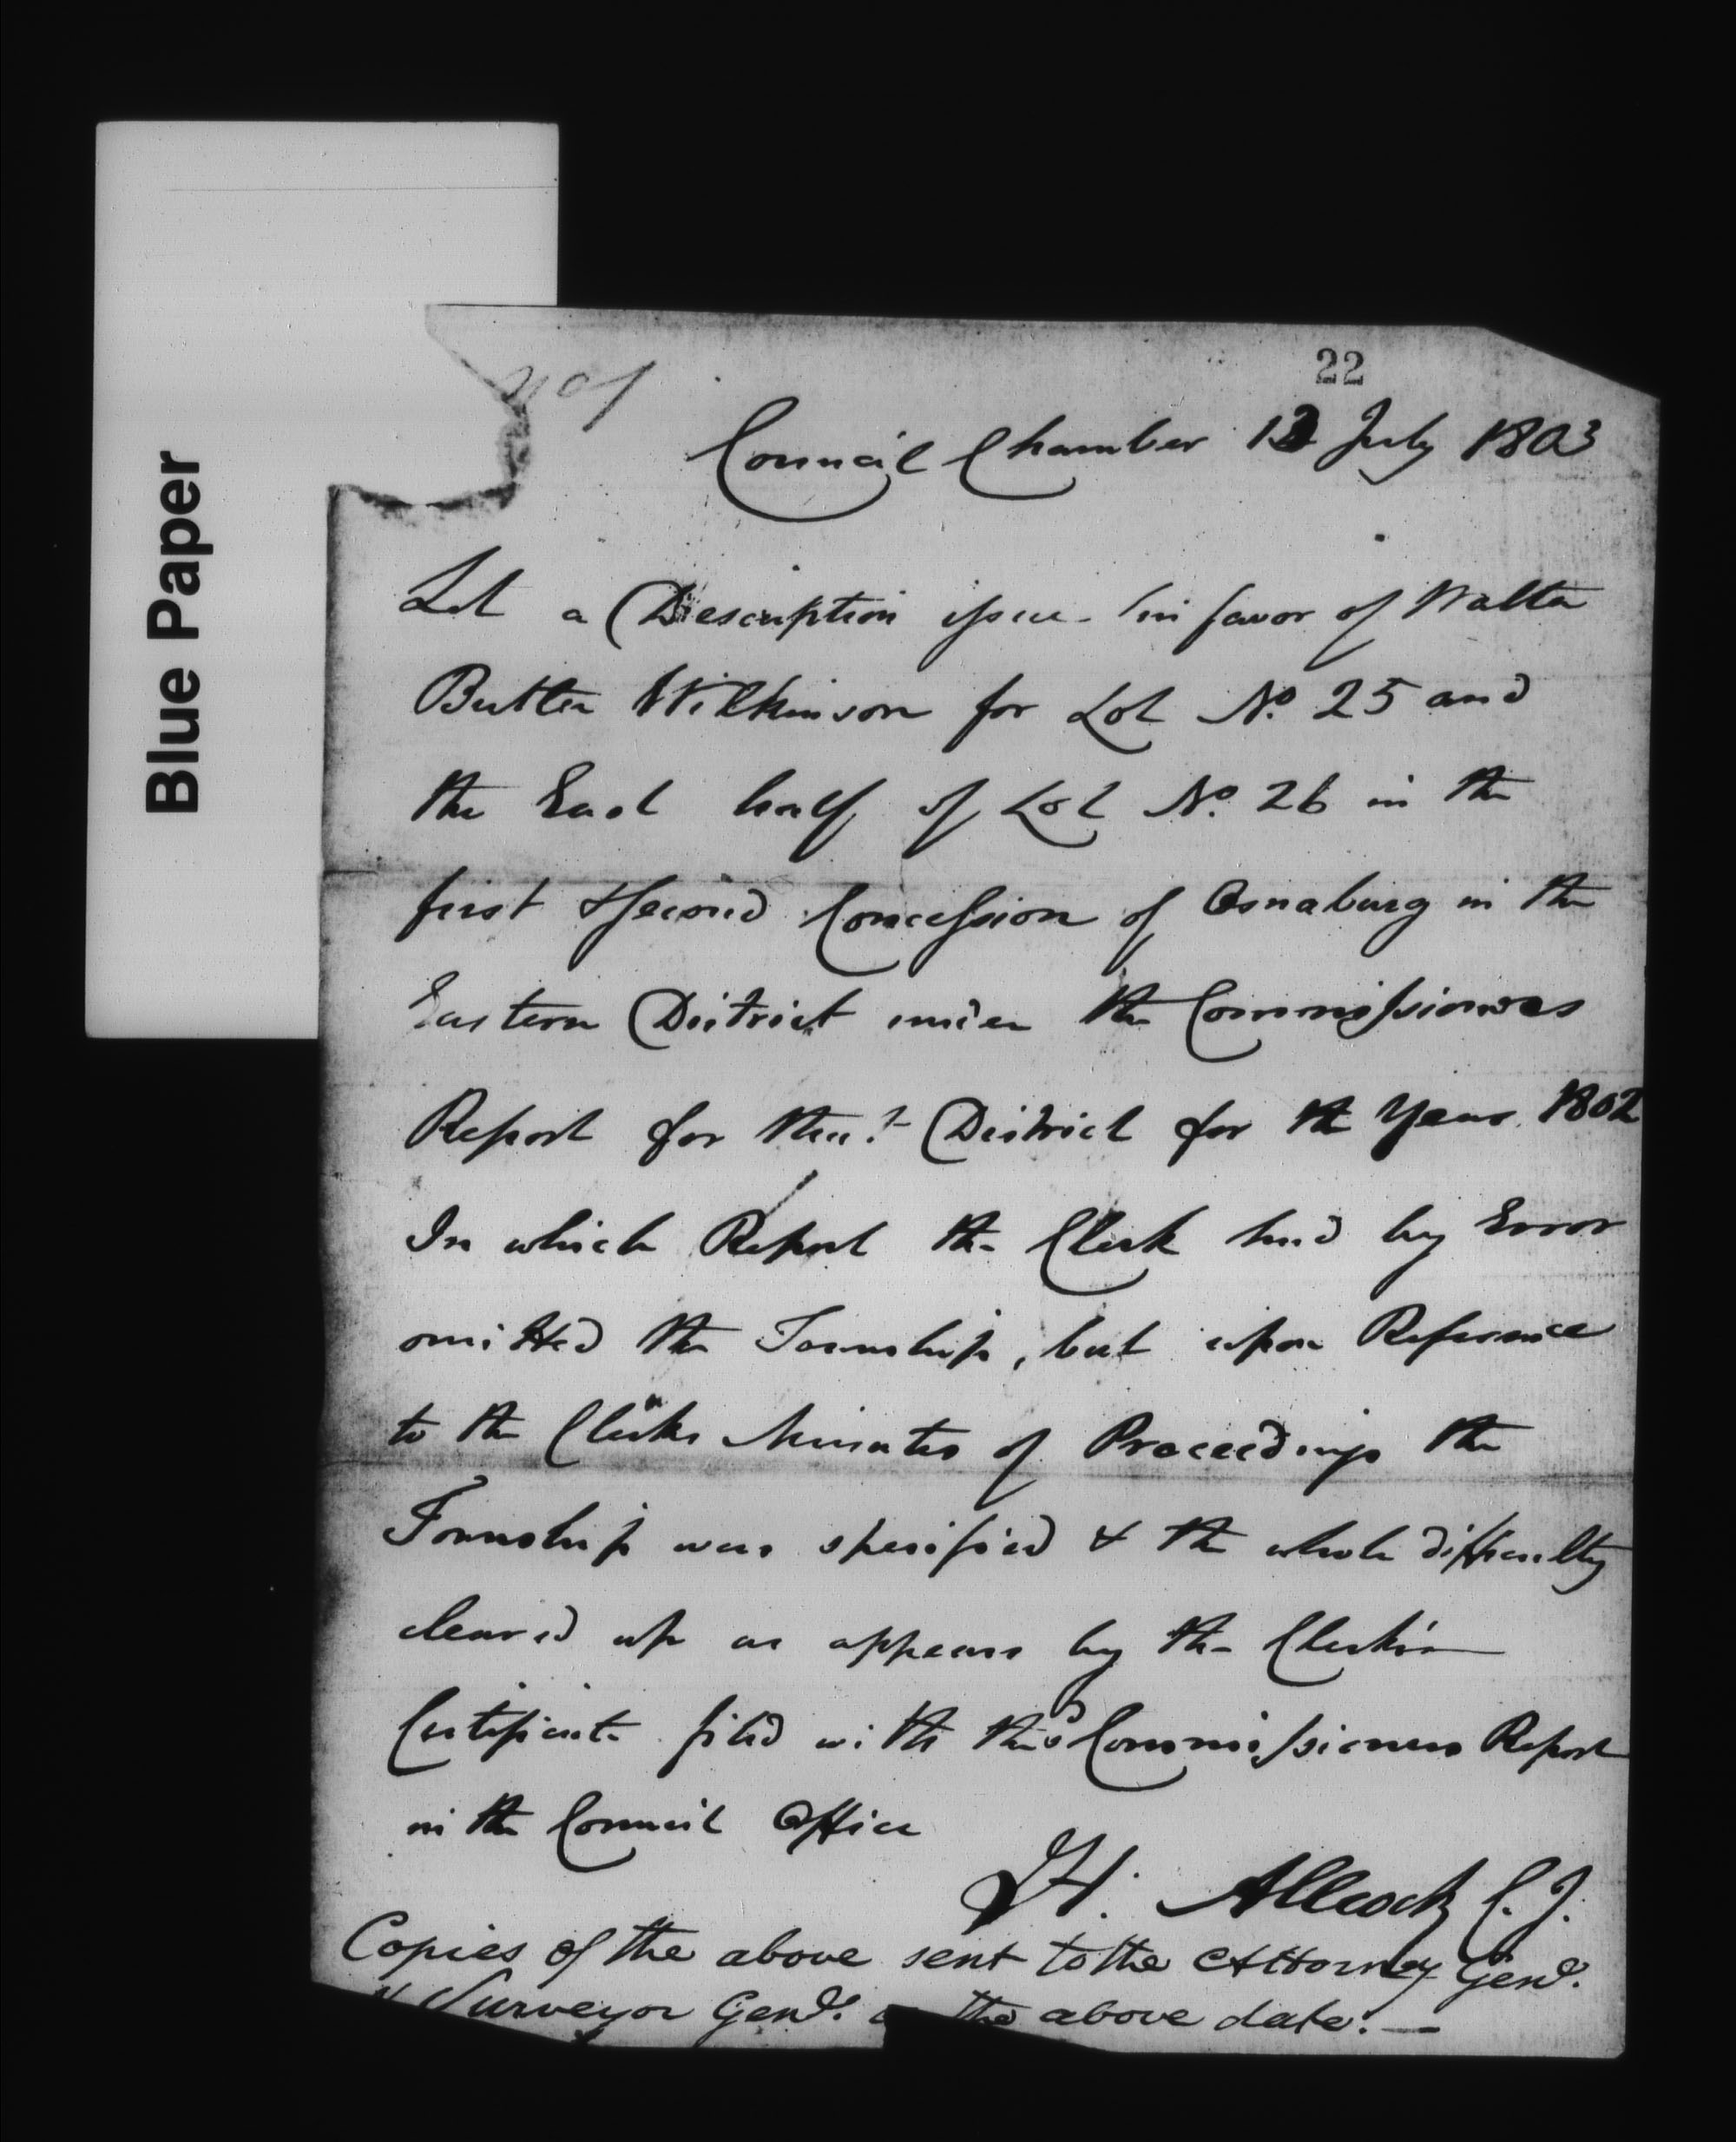 Blue Paper
22
Council Chamber 12 July 1803
Let a Description issue in favor of Walter
Butler Wilkinson for Lot No. 25 and
the East half of Lot No. 26 in the
first & second Concession of Osnaburg in the
Eastern District under the Commissioners
Report for that District for the Year 1802
In which Report the Clerk had by Error
omitted the Township, but upon Reference
to the Clerks Minutes of Proceedings the
Township was specified & the whole difficulty
cleared up as appears by the Clerk's
Certificate filed with the Commissioners Report
in the Council Office
H. Allcock C. J.
Copies of the above sent to the Attorney Genl.
& Surveyor Genl. the above date. —